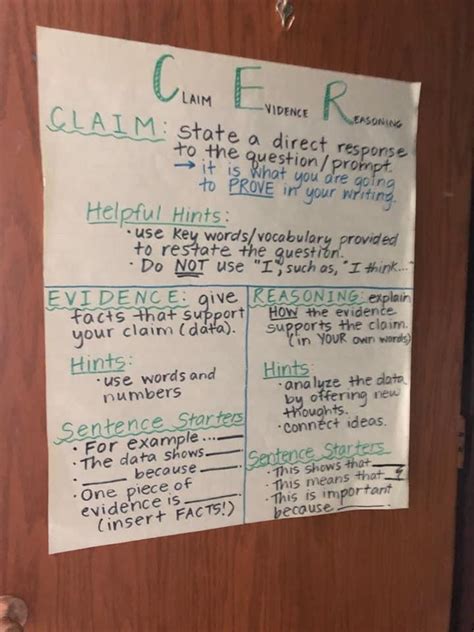 C E R
CLAIM EVIDENCE REASONING
CLAIM: state a direct response
to the question/prompt.
→ it is what you are going
to PROVE in your writing.
Helpful Hints:
· use key words/vocabulary provided
to restate the question.
· Do NOT use "I", such as, "I think..."
EVIDENCE: give
facts that support
your claim (data).
Hints:
· use words and
numbers
Sentence Starters
· For example...___
· The data shows____
· ____ because ____.
· One piece of
evidence is ____
(insert FACTS!)
REASONING: explain
HOW the evidence
supports the claim.
(in YOUR own words)
Hints:
· analyze the data
by offering new
thoughts.
· connect ideas.
Sentence Starters
· This shows that____
· This means that ____
· This is important
because ____.